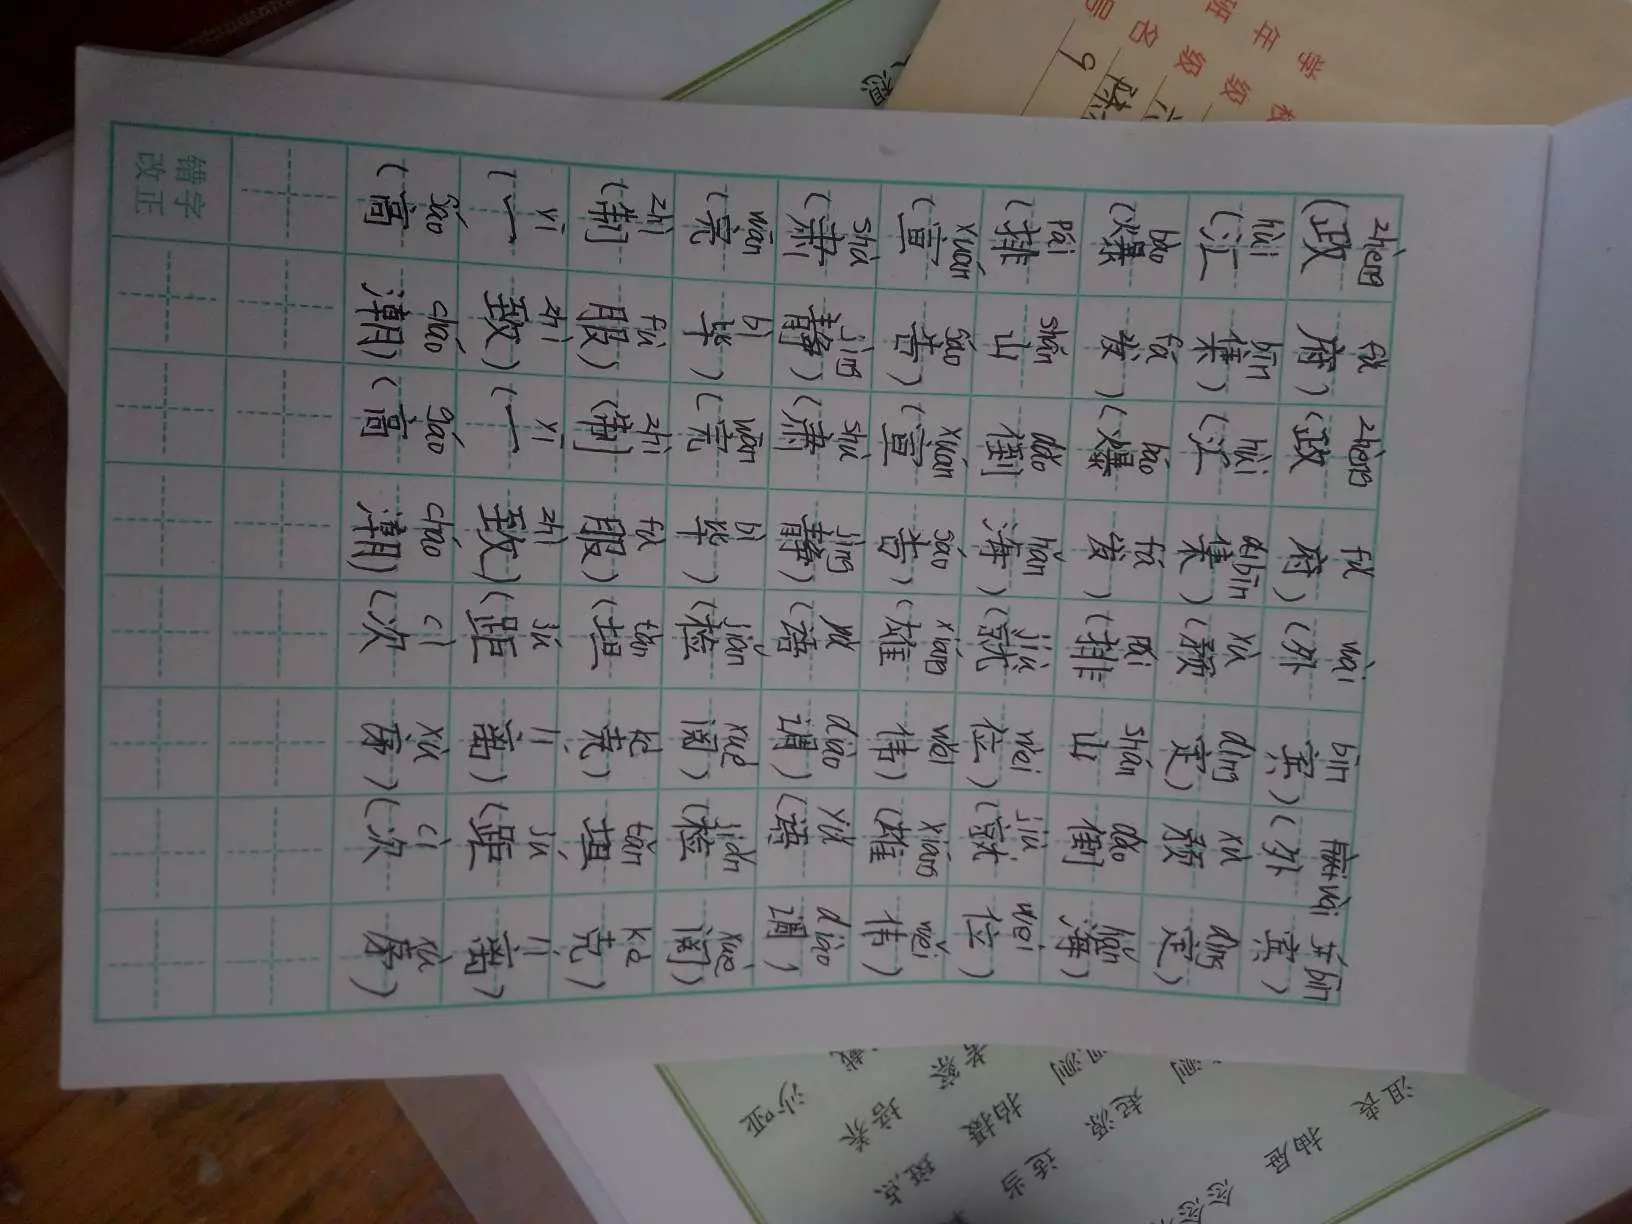 zhèng fǔ zhèng fǔ wài bīn wài bīn
(政府)(政府)(外宾)(外宾)
huì bīn huì bīn xù dìng xù dìng
(汇集)(汇集)(预定)预定)
bào fā bào fā pái shān dǎo hǎi
(爆发)(爆发)(排山倒海)
pái shān dǎo hǎi jiù wèi jiù wèi
(排山倒海)(就位)(就位)
xuān gào xuān gào xióng wěi xióng wěi
(宣告)(宣告)(雄伟)(雄伟)
sù jìng sù jìng yǔ diào yǔ diào
(肃静)(肃静)(语调)(语调)
wán bì wán bì jiǎn yuè jiǎn yuè
(完毕)(完毕)(检阅)(检阅)
zhì fú zhì fú tǎn kè tǎn kè
(制服)(制服)(坦克)坦克)
yī zhì yī zhì jù lí jù lí
(一致)(一致)(距离)(距离)
gāo cháo gāo cháo cì xù cì xù
(高潮)(高潮)(次序)(次序)
错字
改正
学
年级
班级
名
号
9
六
沮丧
抽屉
起源
适当
拍摄
培养
斑点
沙哑